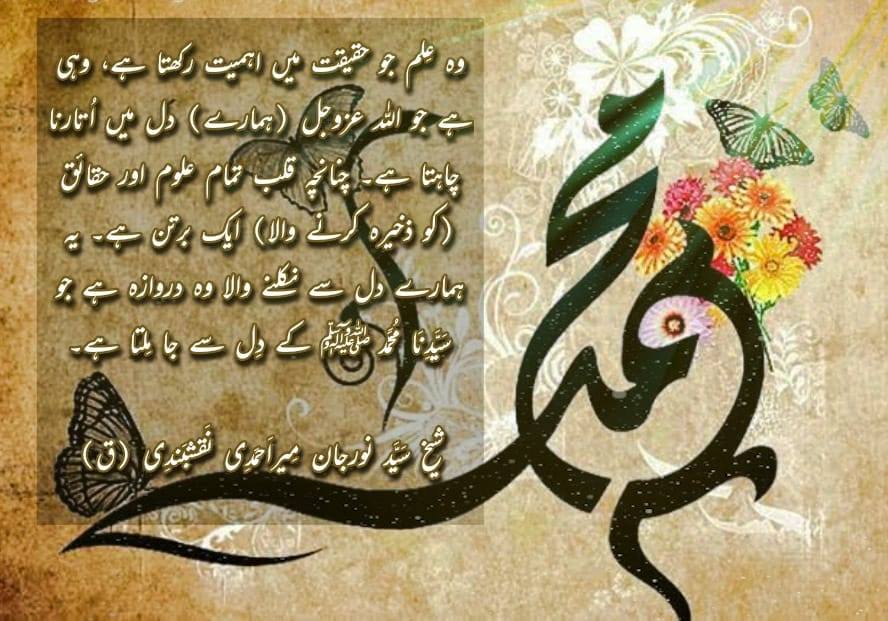 وہ عِلم جو حقیقت میں اہمیت رکھتا ہے، وہی
ہے جو اللہ عزوجل (ہمارے) دل میں اُتارنا
چاہتا ہے۔ چنانچہ قلب تمام علوم اور حقائق
(کو ذخیرہ کرنے والا) ایک برتن ہے۔ یہ
ہمارے دل سے نکلنے والا وہ دروازہ ہے جو
سَیَّدِنَا مُحَمَّد ﷺ کے دِل سے جا مِلتا ہے۔
شیخ سَیَّد نورجان مِیراَحمَدِی نَقشبَندی (ق)
محمد